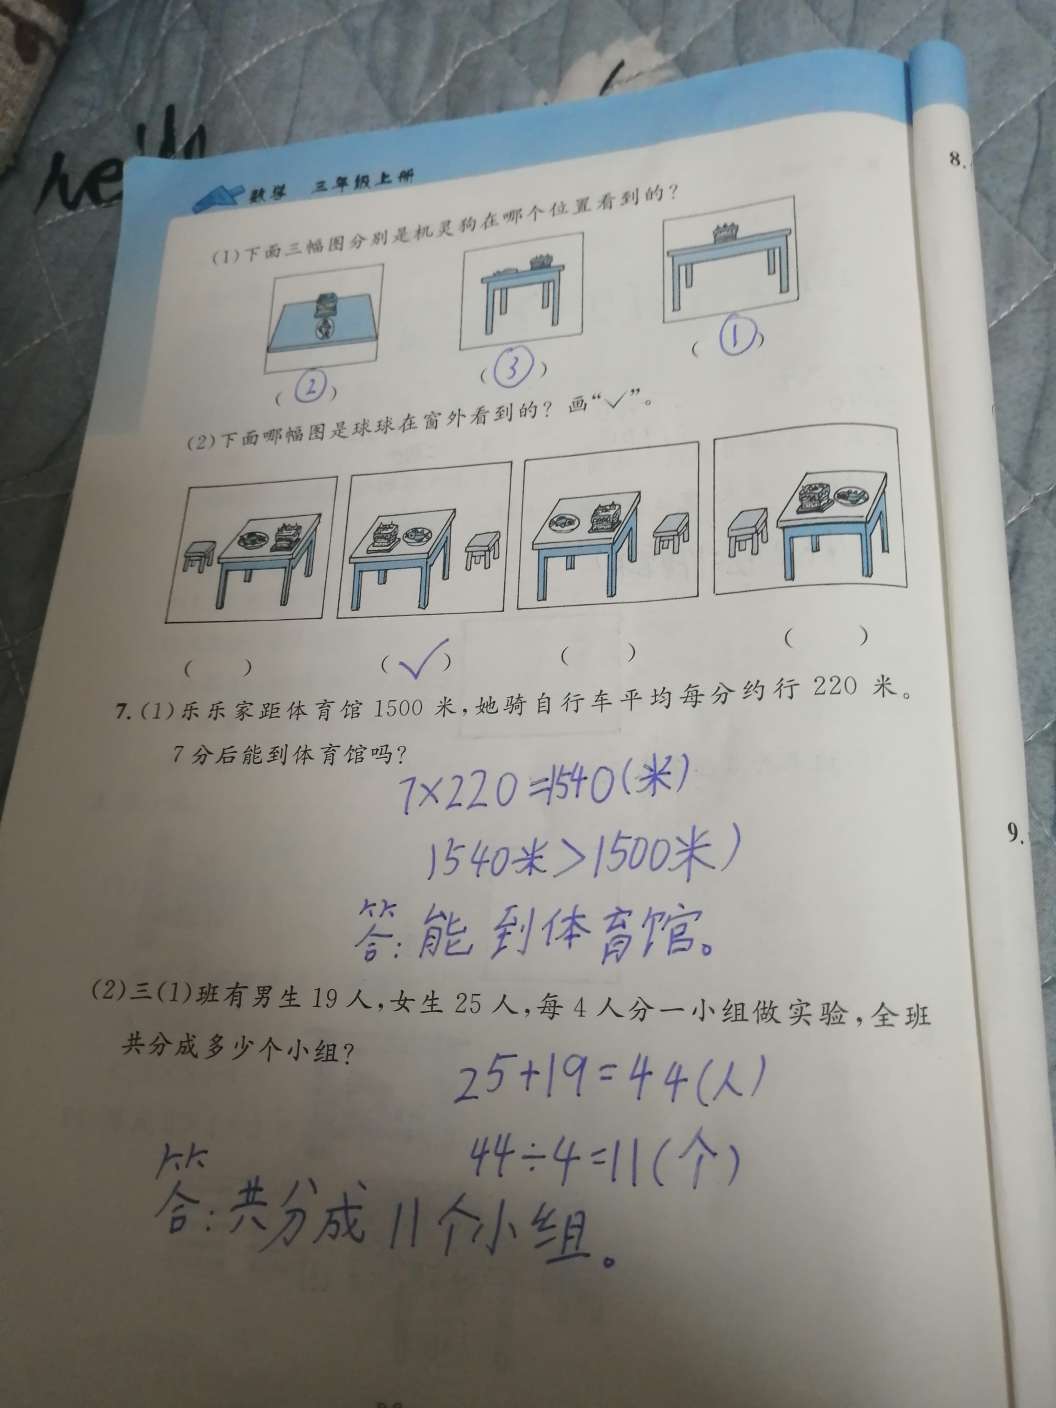 数学 三年级上册
8.
(1)下面三幅图分别是机灵狗在哪个位置看到的？
(②) (③) (①)
(2)下面哪幅图是球球在窗外看到的？画“✓”。
( ) (✓) ( ) ( )
7.(1)乐乐家距体育馆1500米,她骑自行车平均每分约行220米。
7分后能到体育馆吗?
7×220=1540(米)
1540米>1500米)
9.
答:能到体育馆。
(2)三(1)班有男生19人,女生25人,每4人分一小组做实验,全班
共分成多少个小组?
25+19=44(人)
44÷4=11(个)
答:共分成11个小组。